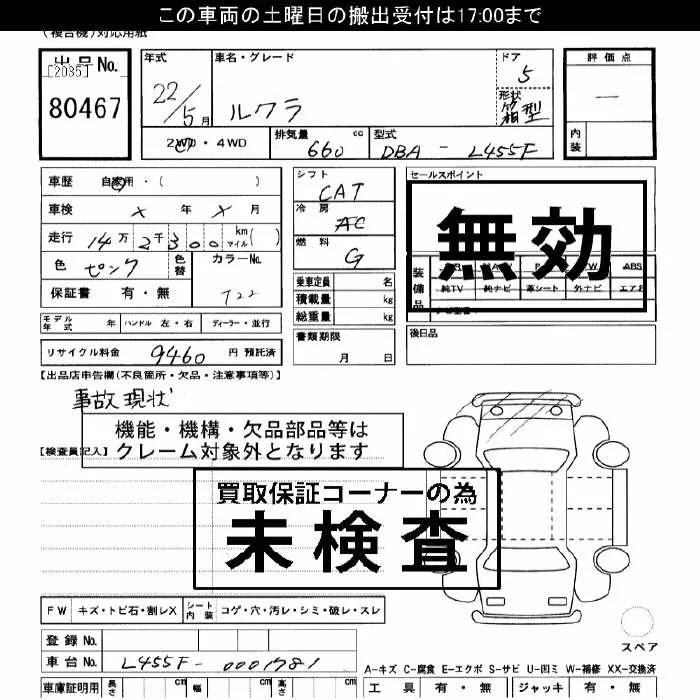 この車両の土曜日の搬出受付は17:00まで
(複合機)対応用紙
出品No.
[2035]
80467
年式
22/5月
車名・グレード
ルクラ
ドア
5
形状
箱型
評価点
—
内装
2WD・4WD
排気量 cc
660
型式
DBA - L455F
車歴 自家用・( )
車検 × 年 × 月
走行 14万2千300 km マイル( )
色 ピンク 色替
カラーNo.
T22
保証書 有・無
シフト
CAT
冷房
AC
燃料
G
乗車定員 名
積載量 kg
総重量 kg
書類期限
月 日
セールスポイント
無効
装備品
ABS
純TV 純ナビ 革シート 外ナビ エアB
後日品
モデル年式 年 ハンドル 左・右 ディーラー・並行
リサイクル料金 9460 円 預託済
【出品店申告欄(不良箇所・欠品・注意事項等)】
事故現状
機能・機構・欠品部品等は
クレーム対象外となります
【検査員記入】
買取保証コーナーの為
未検査
FW キズ・トビ石・割レX シート内装 コゲ・穴・汚レ・シミ・破レ・スレ
スペア
登録No.
車台No. L455F-0001781
A-キズ C-腐食 E-エクボ S-サビ U-凹ミ W-補修 XX-交換済
車庫証明用 長さ cm 幅 cm 高さ cm
工具 有・無 ジャッキ 有・無